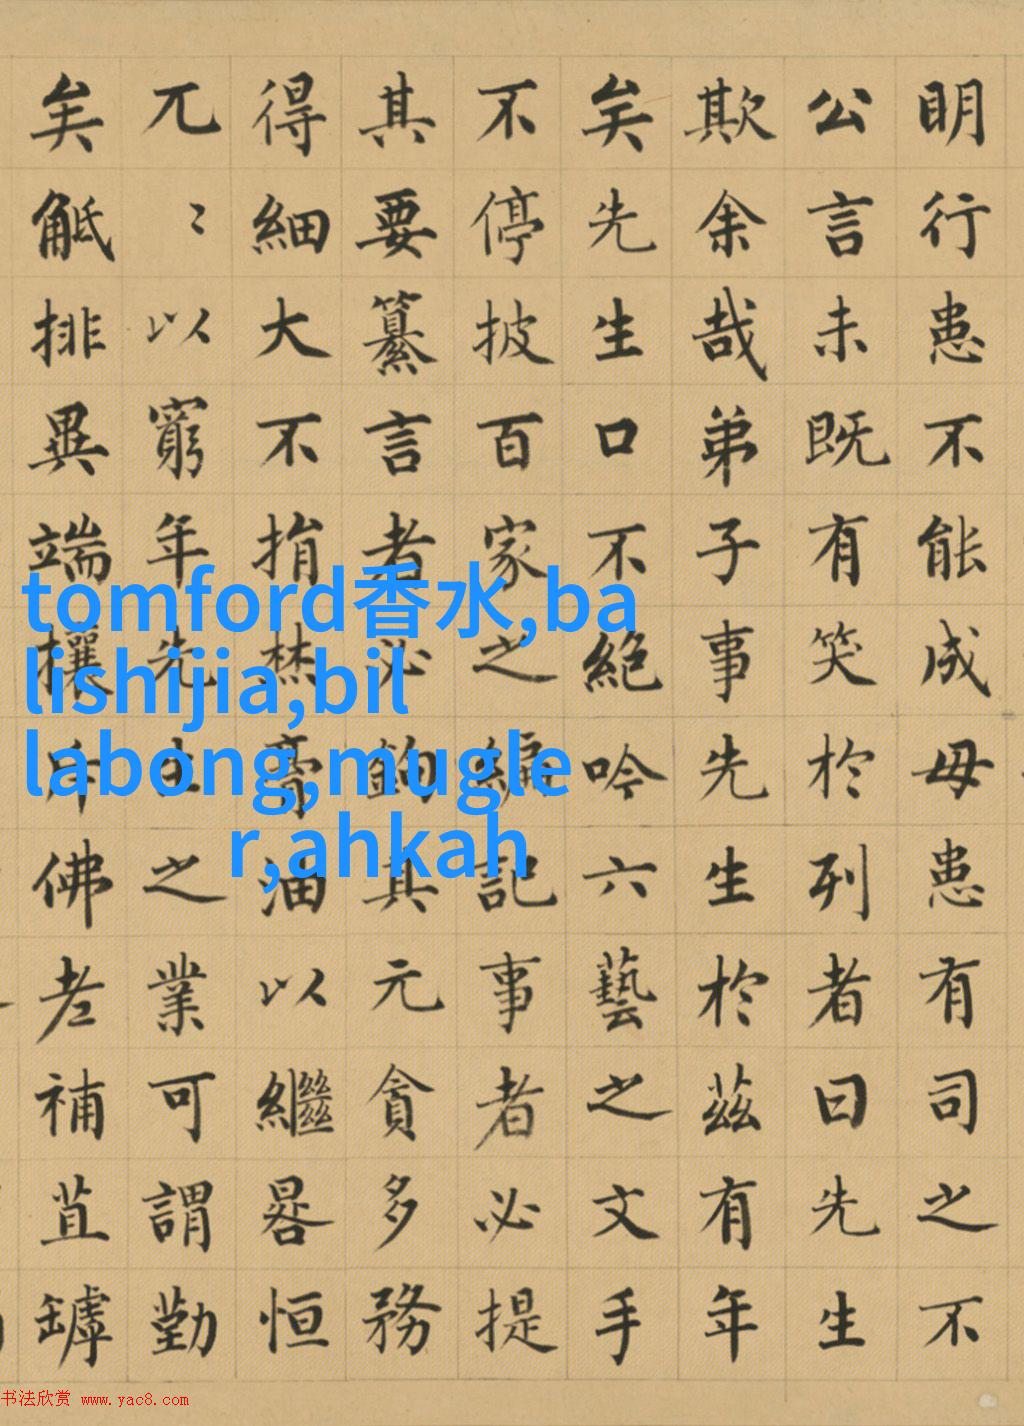 明行患不能成毋患有司之不
公言未既有笑於列者曰先生
欺余哉弟子事先生於茲有年
矣先生口不絕吟六藝之文手
不停披百家之編記事者必提
其要纂言者必鉤其元貪多務
得細大不捐焚膏油以繼晷恒
兀〻以窮年先生之業可謂勤
矣觝排異端攘斥佛老補苴罅
tomford香水,ba
lishijia,bil
labong,mugle
r,ahkah
书法欣赏 www.yac8.com